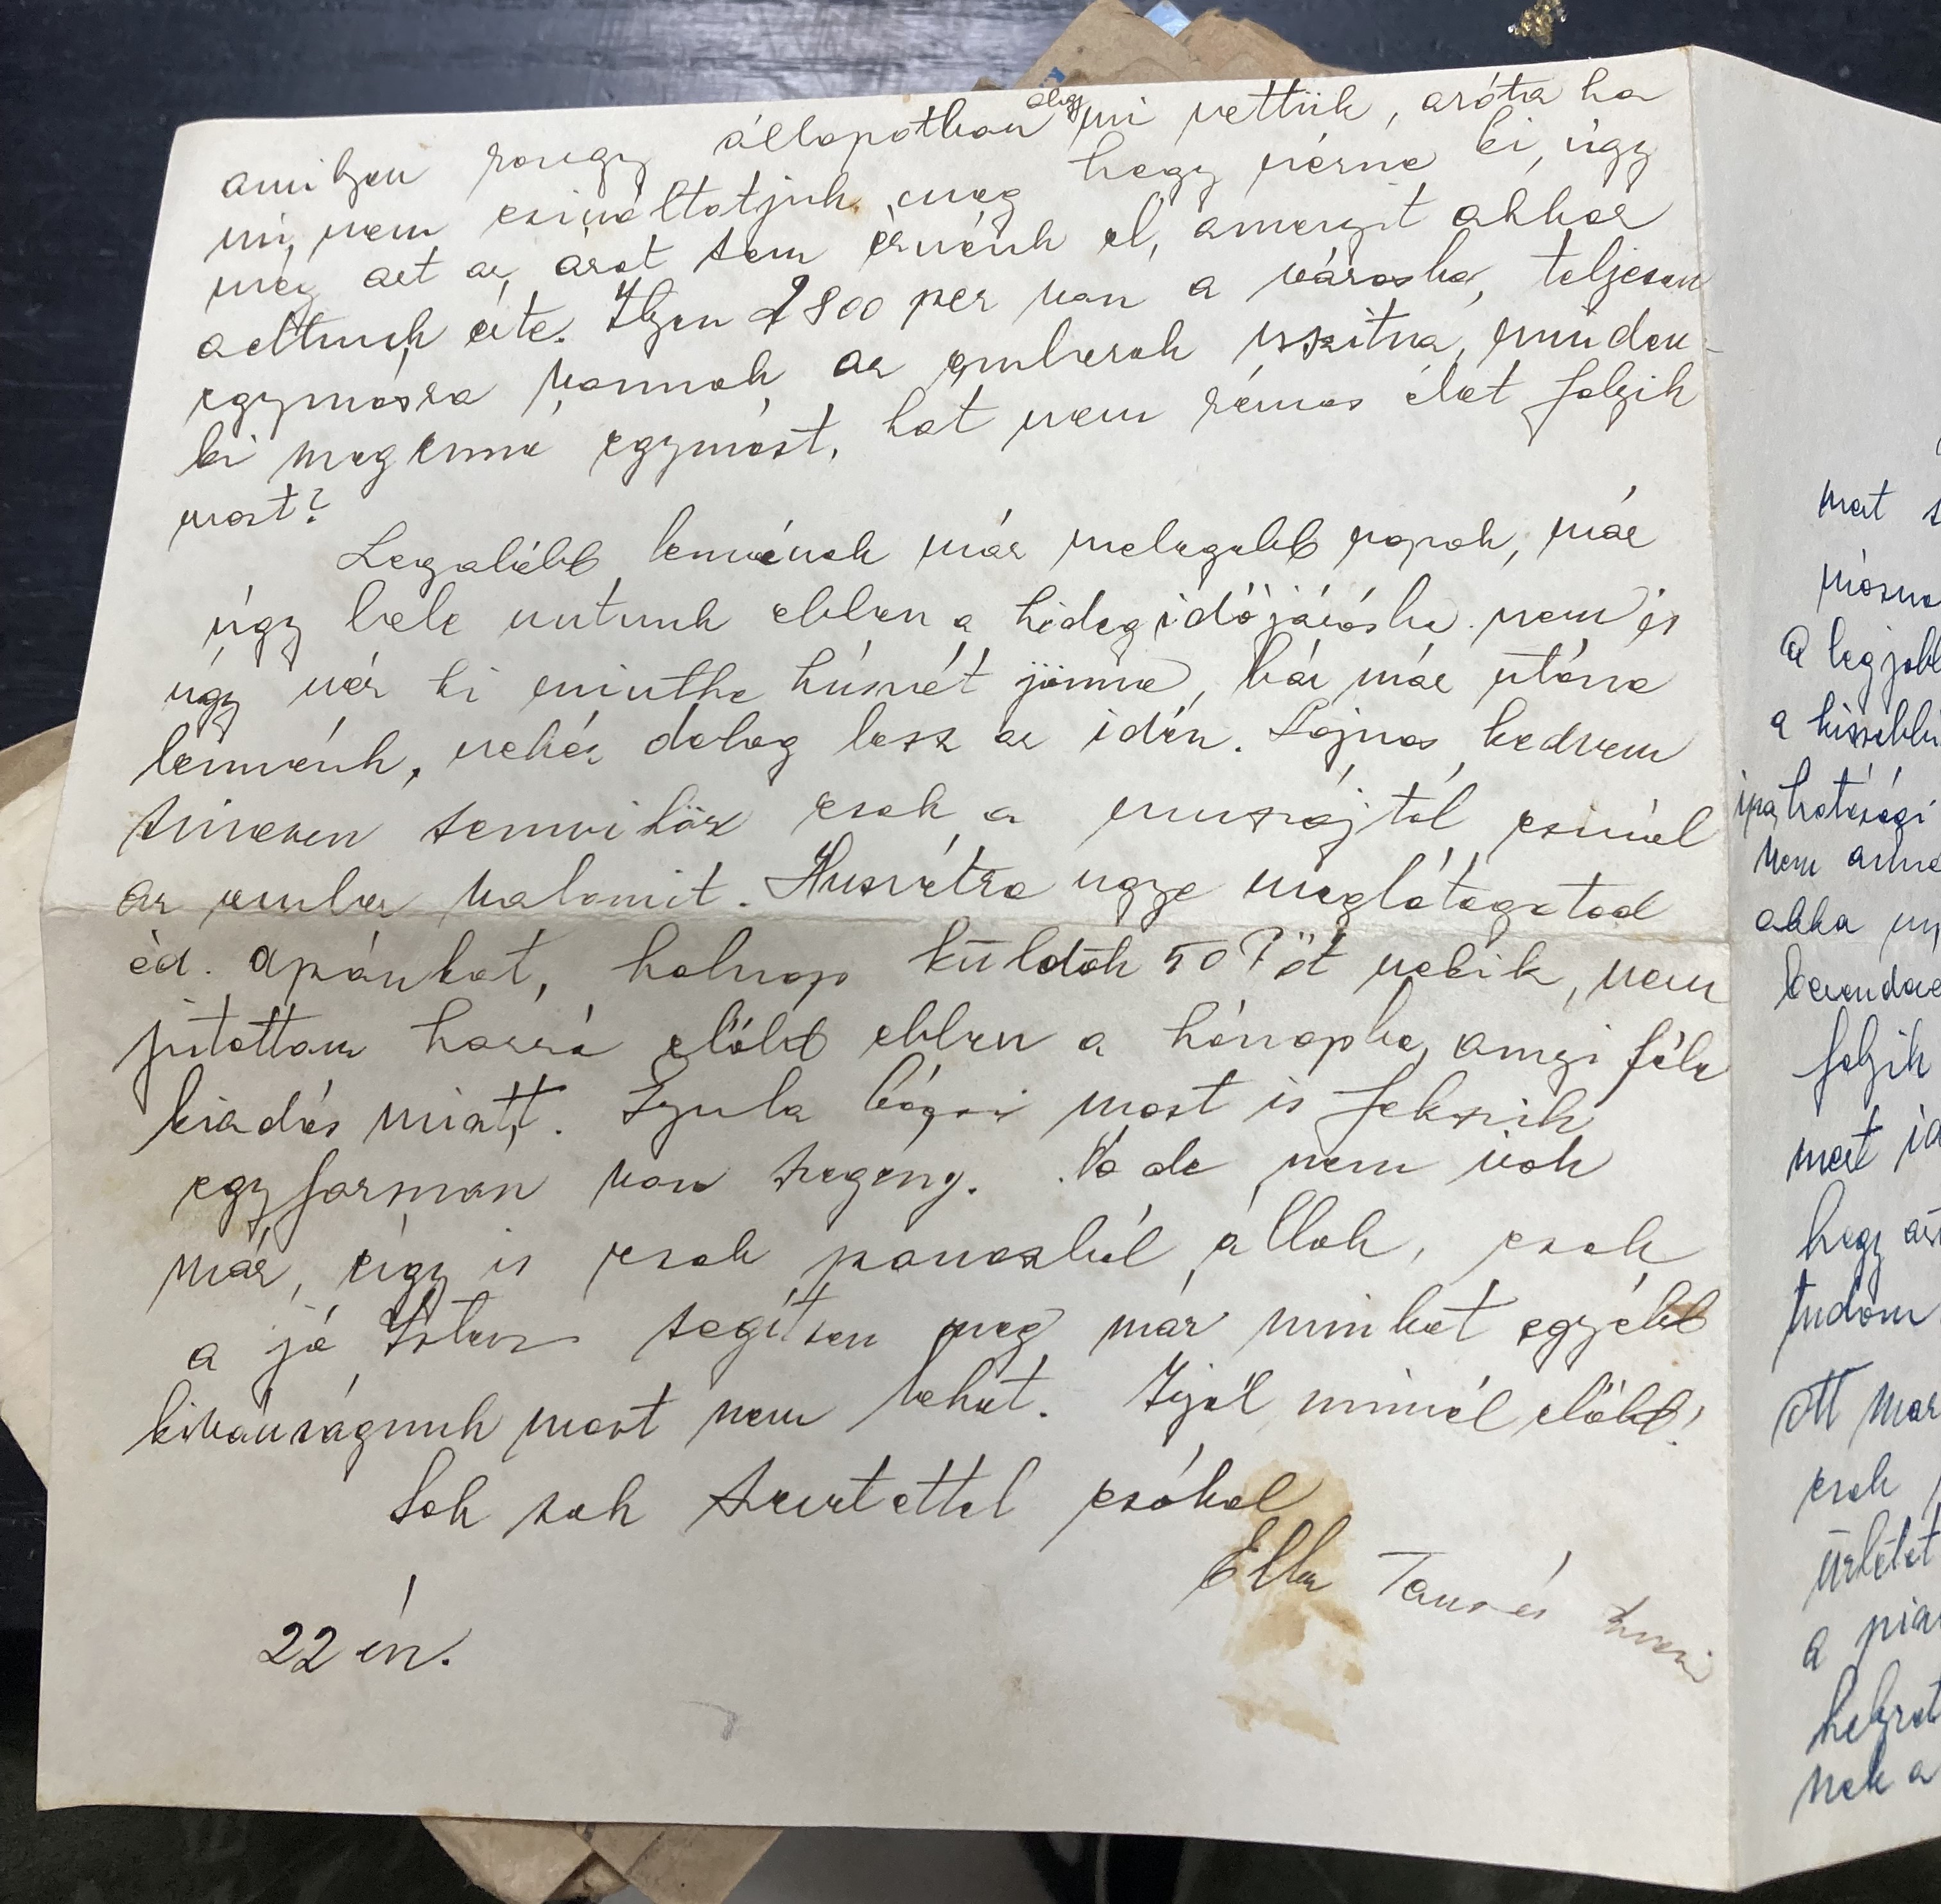 amilyen rongy állapotban ahogy mi vettük, azóta ha
mi nem csináltatjuk meg hogy nézne ki, úgy
még azt az árat sem érnénk el, amenyit akkor
adtunk érte. Ilyen 2800 per van a városba, teljesen
egymásra vannak az emberek uszitva, minden-
ki megenné egymást, hat nem rémes élet folyik
most?
Legalább lennének már melegebb napok, már
úgy bele untunk ebben a hideg időjárásba. nem is
úgy néz ki mintha húsvét jönne, bár már utána
lennénk, nehéz dolog lesz az idén. Sajnos kedvem
sincsen semmihöz csak a muszájtól csinál
az ember valamit. Husvétra ugye meglátogatod
éd. apánkat, holnap küldök 50 P öt nekik, nem
jutottam hozzá előbb ebben a hónapba, anyi féle
kiadás miatt. Gyula bácsi most is fekszik
egyformán van szegény. Na de nem irok
már, úgy is csak panaszból állok, csak
a jó Isten segítsen meg már minket egyébb
kivánságunk most nem lehet. Irjál minnél előbb!
Sok sok szeretettel csókol
Ella Tamás
22 én.
mat
a legjobb
a kissebb
iparhatósági
nem
akka
berendez
folyik
mert
hogy
tudom
ott mar
csak
üzletet
a pia
helyzet
nek a